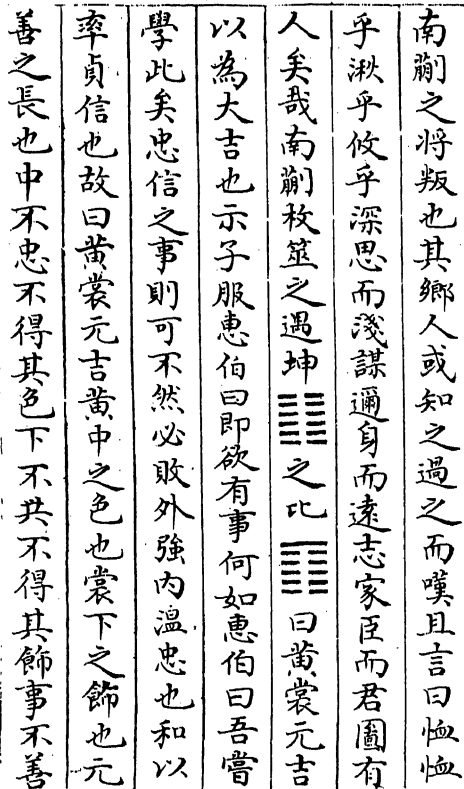 南蒯之将叛也其鄉人或知之過之而嘆且言曰恤恤
乎湫乎攸乎深思而淺謀邇身而遠志家臣而君圖有
人矣哉南蒯枚筮之遇坤䷁之比䷖曰黄裳元吉
以為大吉也示子服惠伯曰即欲有事何如惠伯曰吾嘗
學此矣忠信之事則可不然必敗外強内温忠也和以
率貞信也故曰黄裳元吉黄中之色也裳下之飾也元
善之長也中不忠不得其色下不共不得其飾事不善